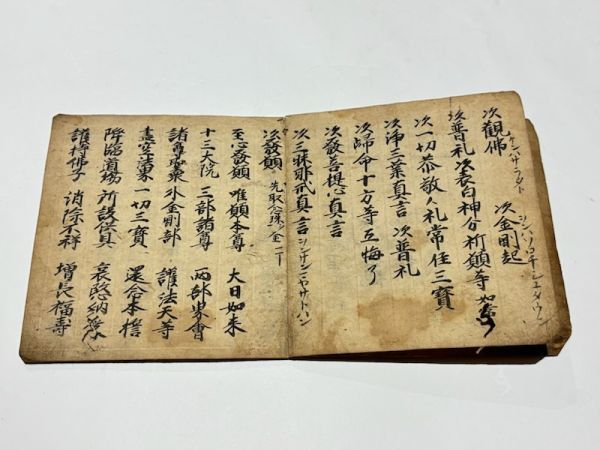 次觀佛 次金剛起
次普礼 次表白神分祈願等 如常
次一切恭敬〻礼常住三寳
次浄三業真言 次普礼
次歸命十方等五悔了
次發菩提心真言
次三昧耶戒真言 サトバン
次發願 先取念珠金一丁
至心發願 唯願本尊 大日如来
十三大院 三部諸尊 両部界會
諸尊聖衆 外金剛部 護法天等
盡空法界 一切三寳 還念本誓
降臨道場 所設供具 哀愍納受
護持佛子 消除不祥 增長福壽